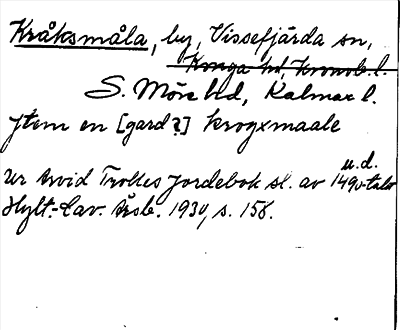 Kråksmåla, by, Vissefjärda sn,
Konga hd, Kronob. l.
S. Möre hd, Kalmar l.
Jtem en [gard?] krogxmaale
u.d.
Ur Arvid Trolles Jordebok sl. av 1490-talv
Hylt.-Cav. Årsb. 1934, s. 158.